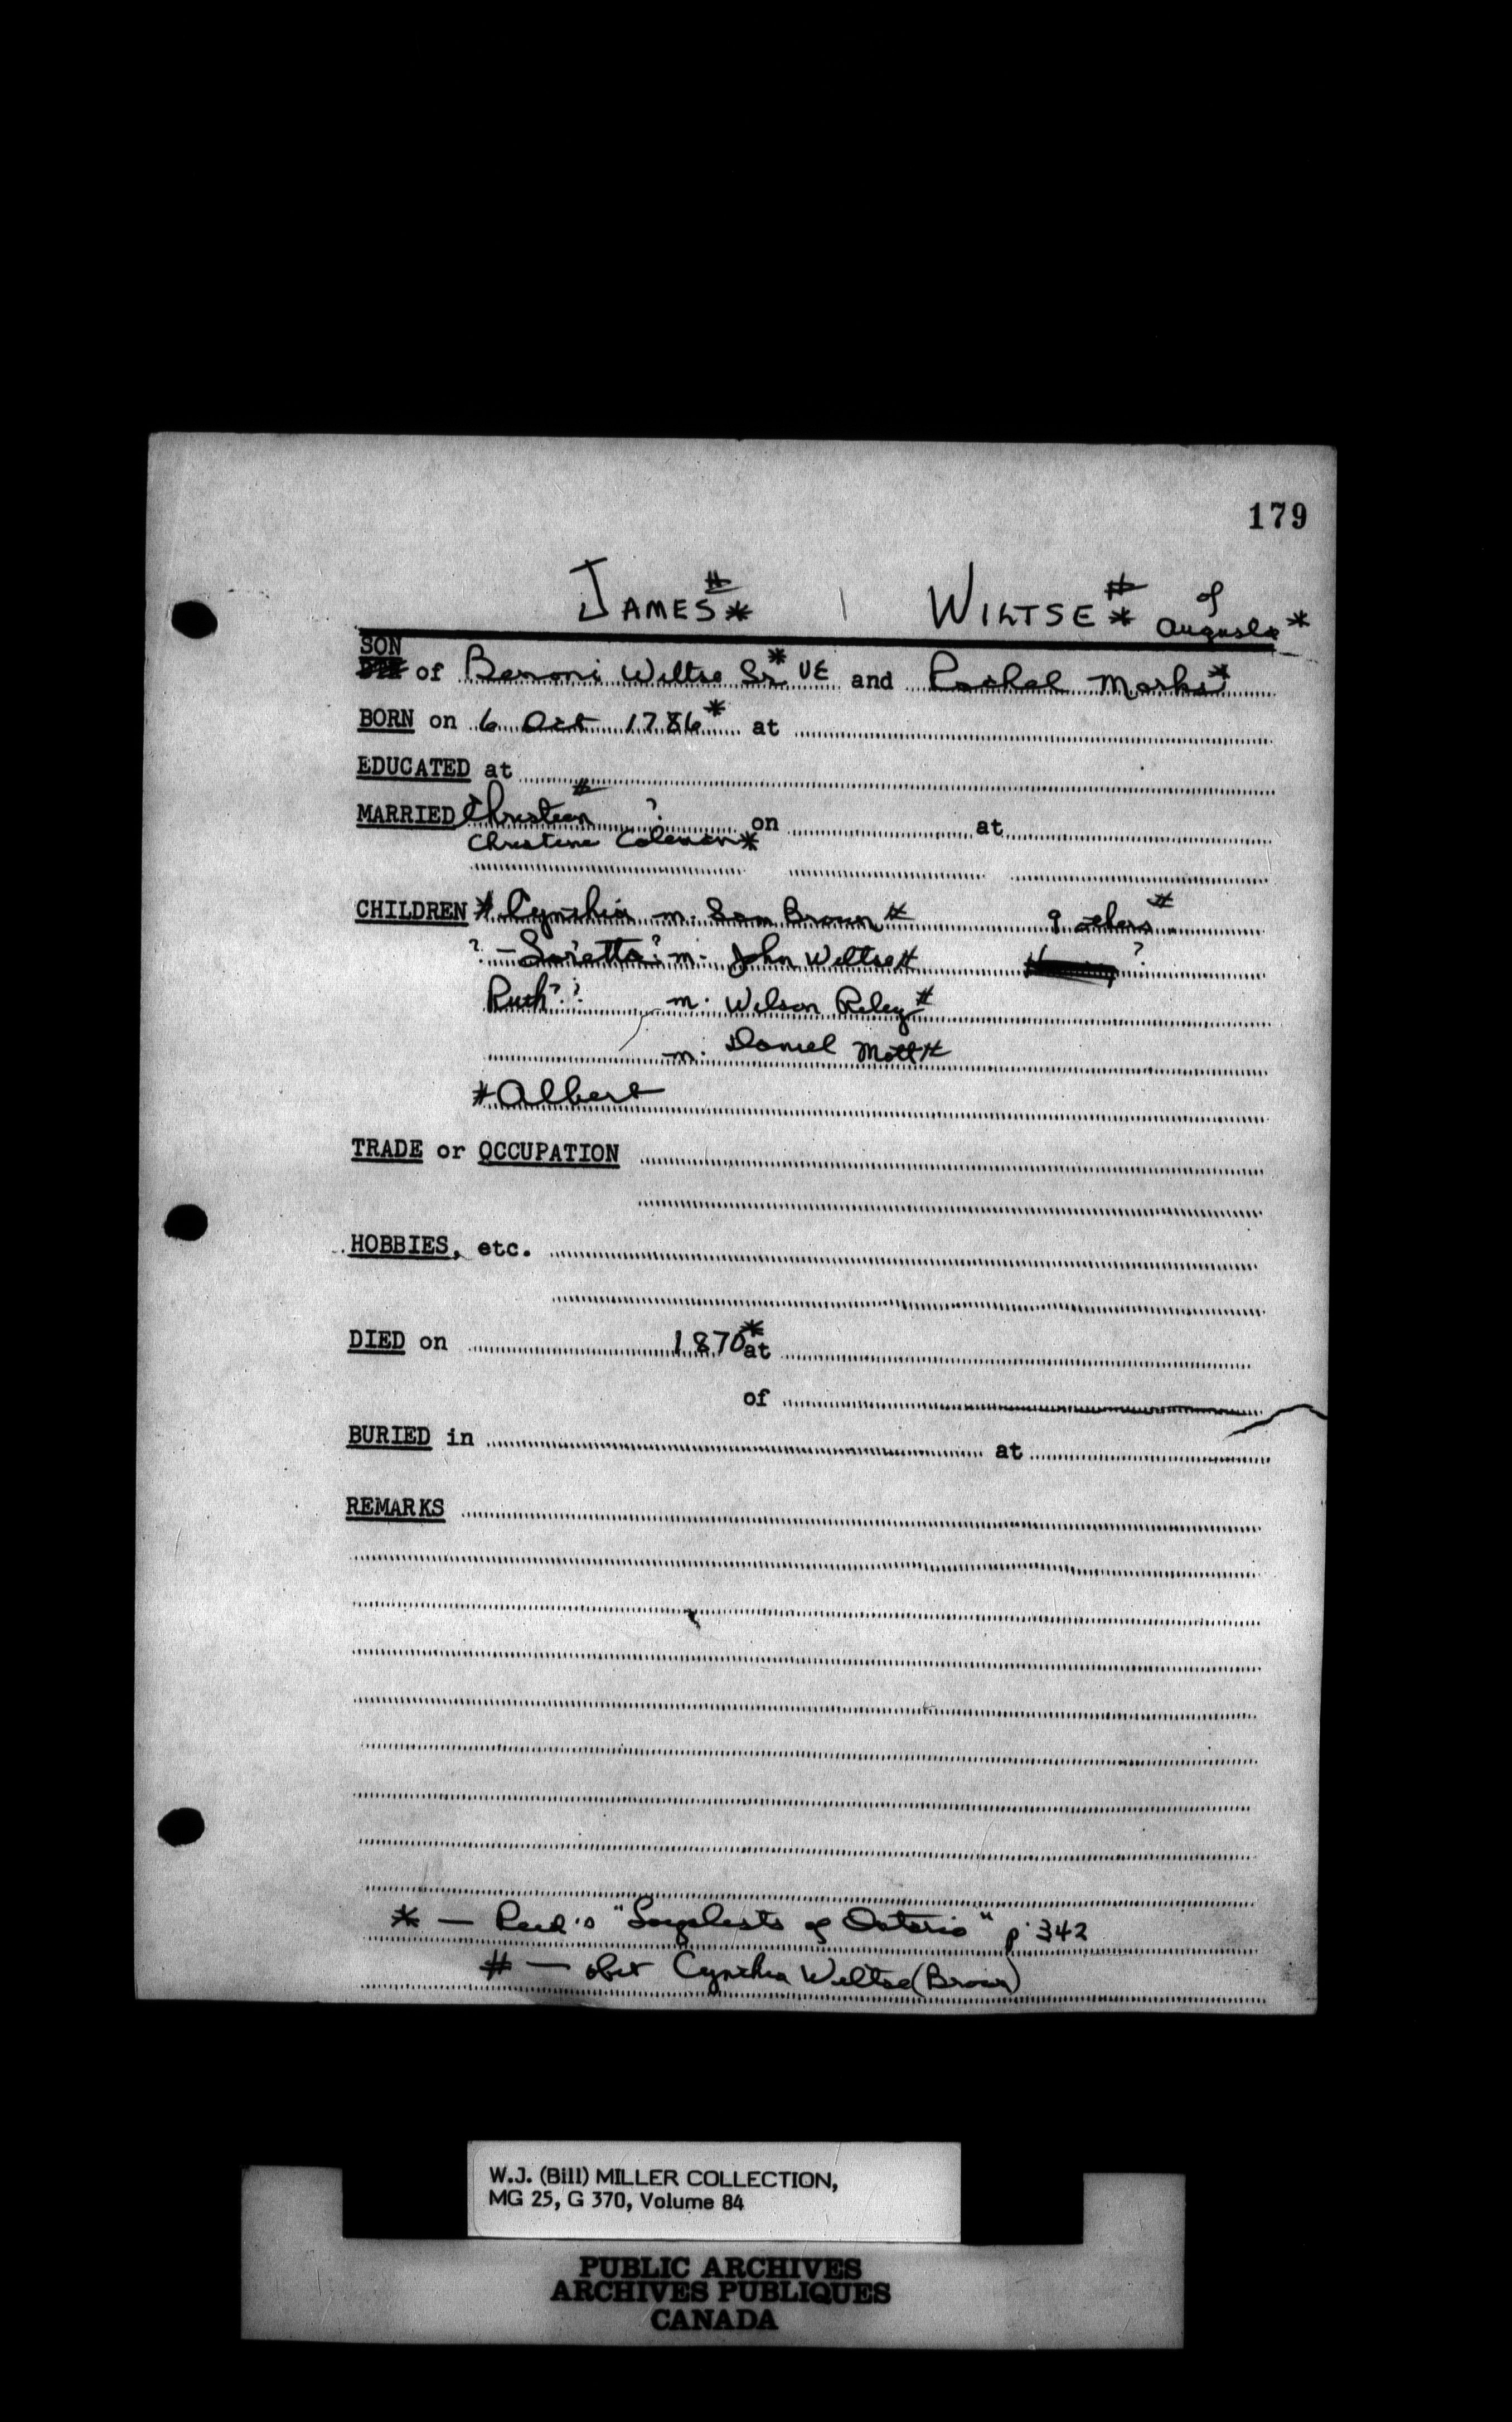 179
JAMES#* WILTSE#* of Augusta*
SON
of Benoni Wiltse Sr* UE and Rachel Marks*
BORN on 6 Oct 1786* at
EDUCATED at
MARRIED Christean# ? on at
Christine Coleman*
CHILDREN # Cynthia m. Sam Brown# 9 others#
? - Loretta? m. John Wiltse# ?
Ruth?? m. Wilson Riley#
m. Daniel Mott#
# Albert
TRADE or OCCUPATION
HOBBIES, etc.
DIED on 1870* at
of
BURIED in at
REMARKS
* — Reid's "Loyalists of Ontario" p 342
# — obit Cynthia Wiltse (Brown)
W.J. (Bill) MILLER COLLECTION,
MG 25, G 370, Volume 84
PUBLIC ARCHIVES
ARCHIVES PUBLIQUES
CANADA